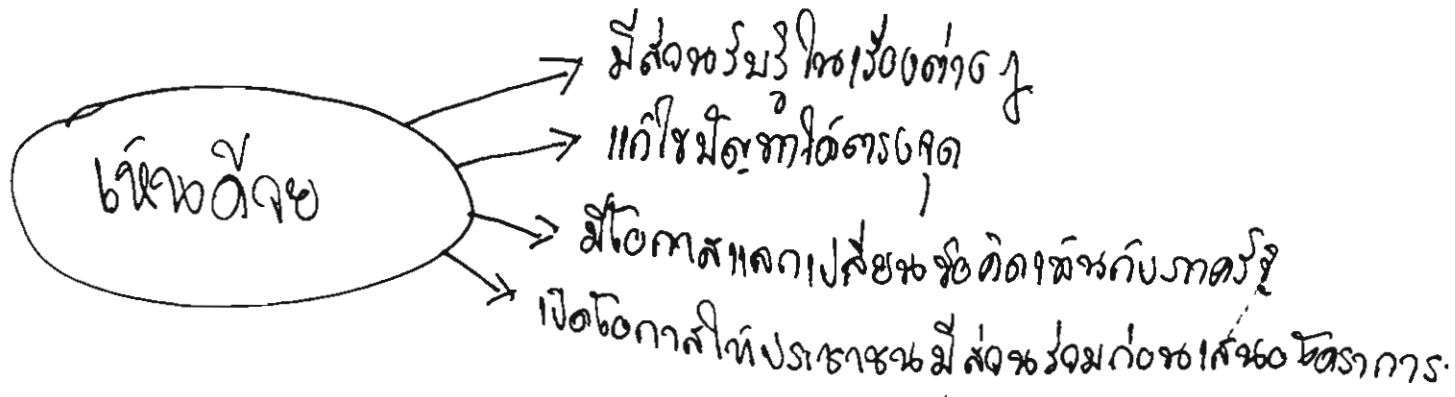 เห็นด้วย
มีส่วนรับรู้ในเรื่องต่างๆ
แก้ไขปัญหาได้ตรงจุด
มีโอกาสแลกเปลี่ยนข้อคิดเห็นกับภาครัฐ
เปิดโอกาสให้ประชาชนมีส่วนร่วมก่อนเสนอโครงการ.